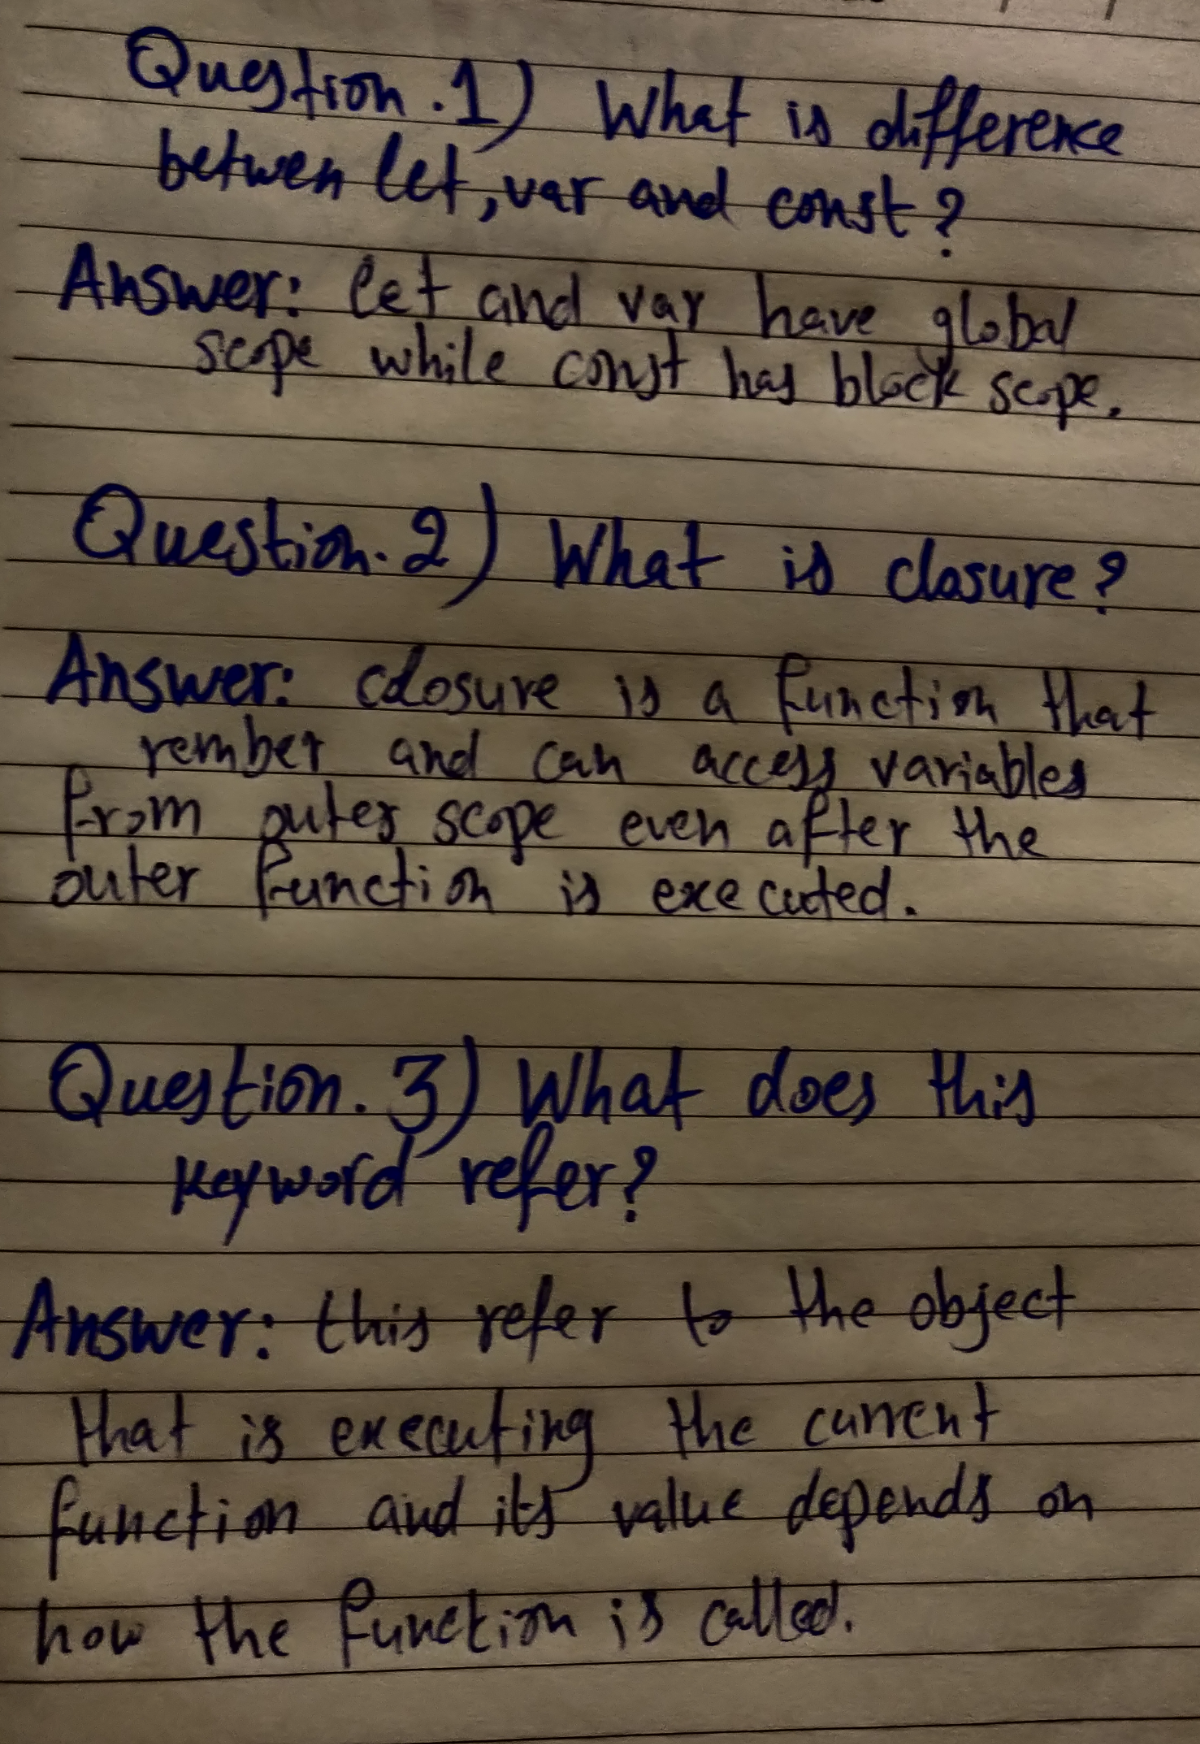 Question.1) What is difference
betwen let, var and const?
Answer: let and var have global
scope while const has block scope.
Question.2) What is closure?
Answer: closure is a function that
rember and can access variables
from outer scope even after the
outer function is executed.
Question.3) What does this
keyword refer?
Answer: this refer to the object
that is executing the current
function and its value depends on
how the function is called.